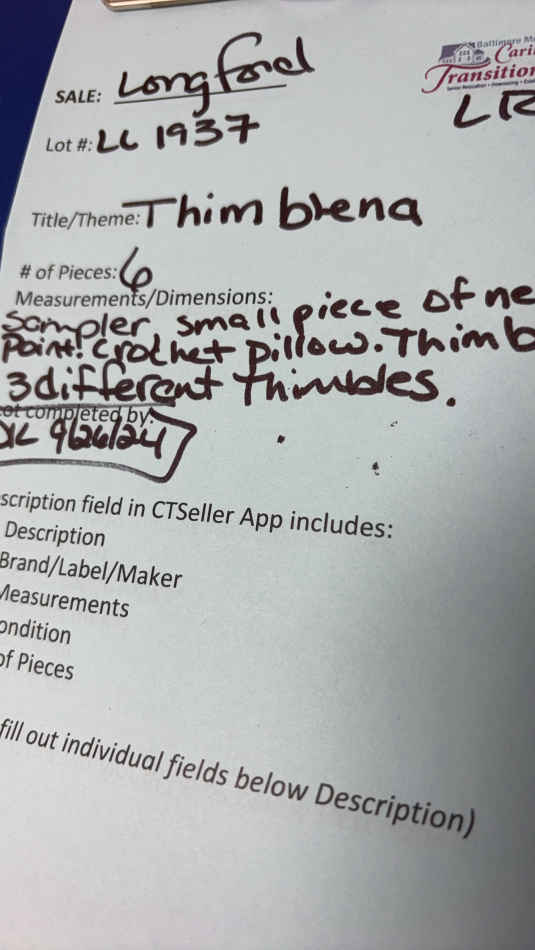 Baltimore M
Cari
Transition
SALE: Longford
LR
Lot #: LL 1937
Title/Theme: Thimblena
# of Pieces: 6
Measurements/Dimensions:
Sampler, small piece of ne
Point. Crochet pillow. Thimb
3 different thimbles.
ot completed by:
9/26/24
scription field in CTSeller App includes:
Description
Brand/Label/Maker
Measurements
ondition
of Pieces
fill out individual fields below Description)